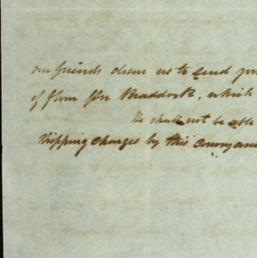 our friends desire us to send you
of from Jn Braddock, which
We shall not be able
Shipping Charges by this Conveyan